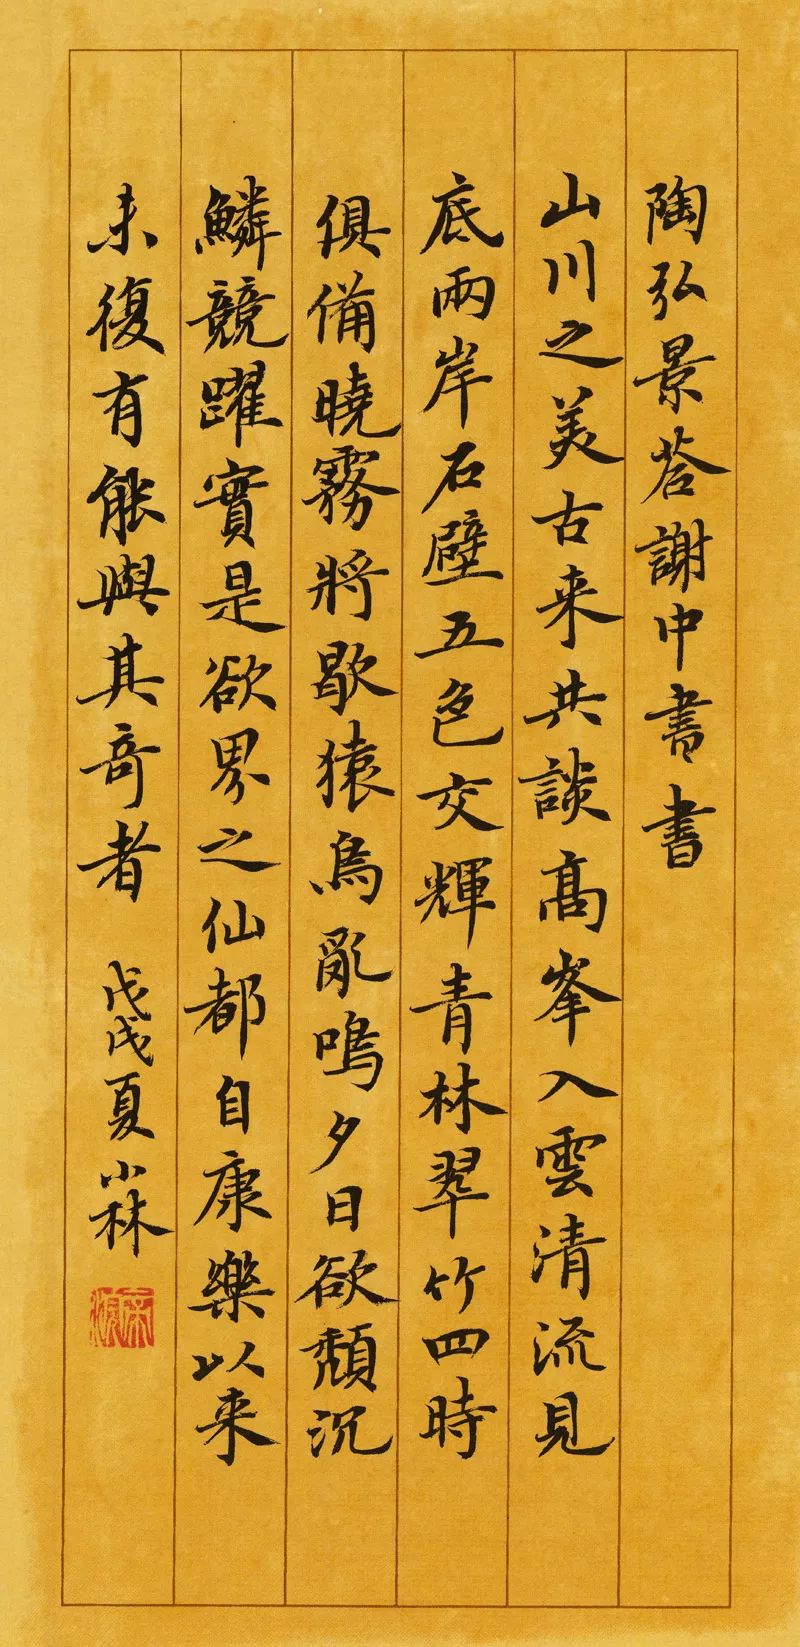 陶弘景荅謝中書書
山川之美古来共談髙峯入雲清流見
底兩岸石壁五色交輝青林翠竹四時
俱備曉霧將歇猿鳥亂鳴夕日欲頽沉
鱗競躍實是欲界之仙都自康樂以来
未復有能與其竒者 戊戌夏小林